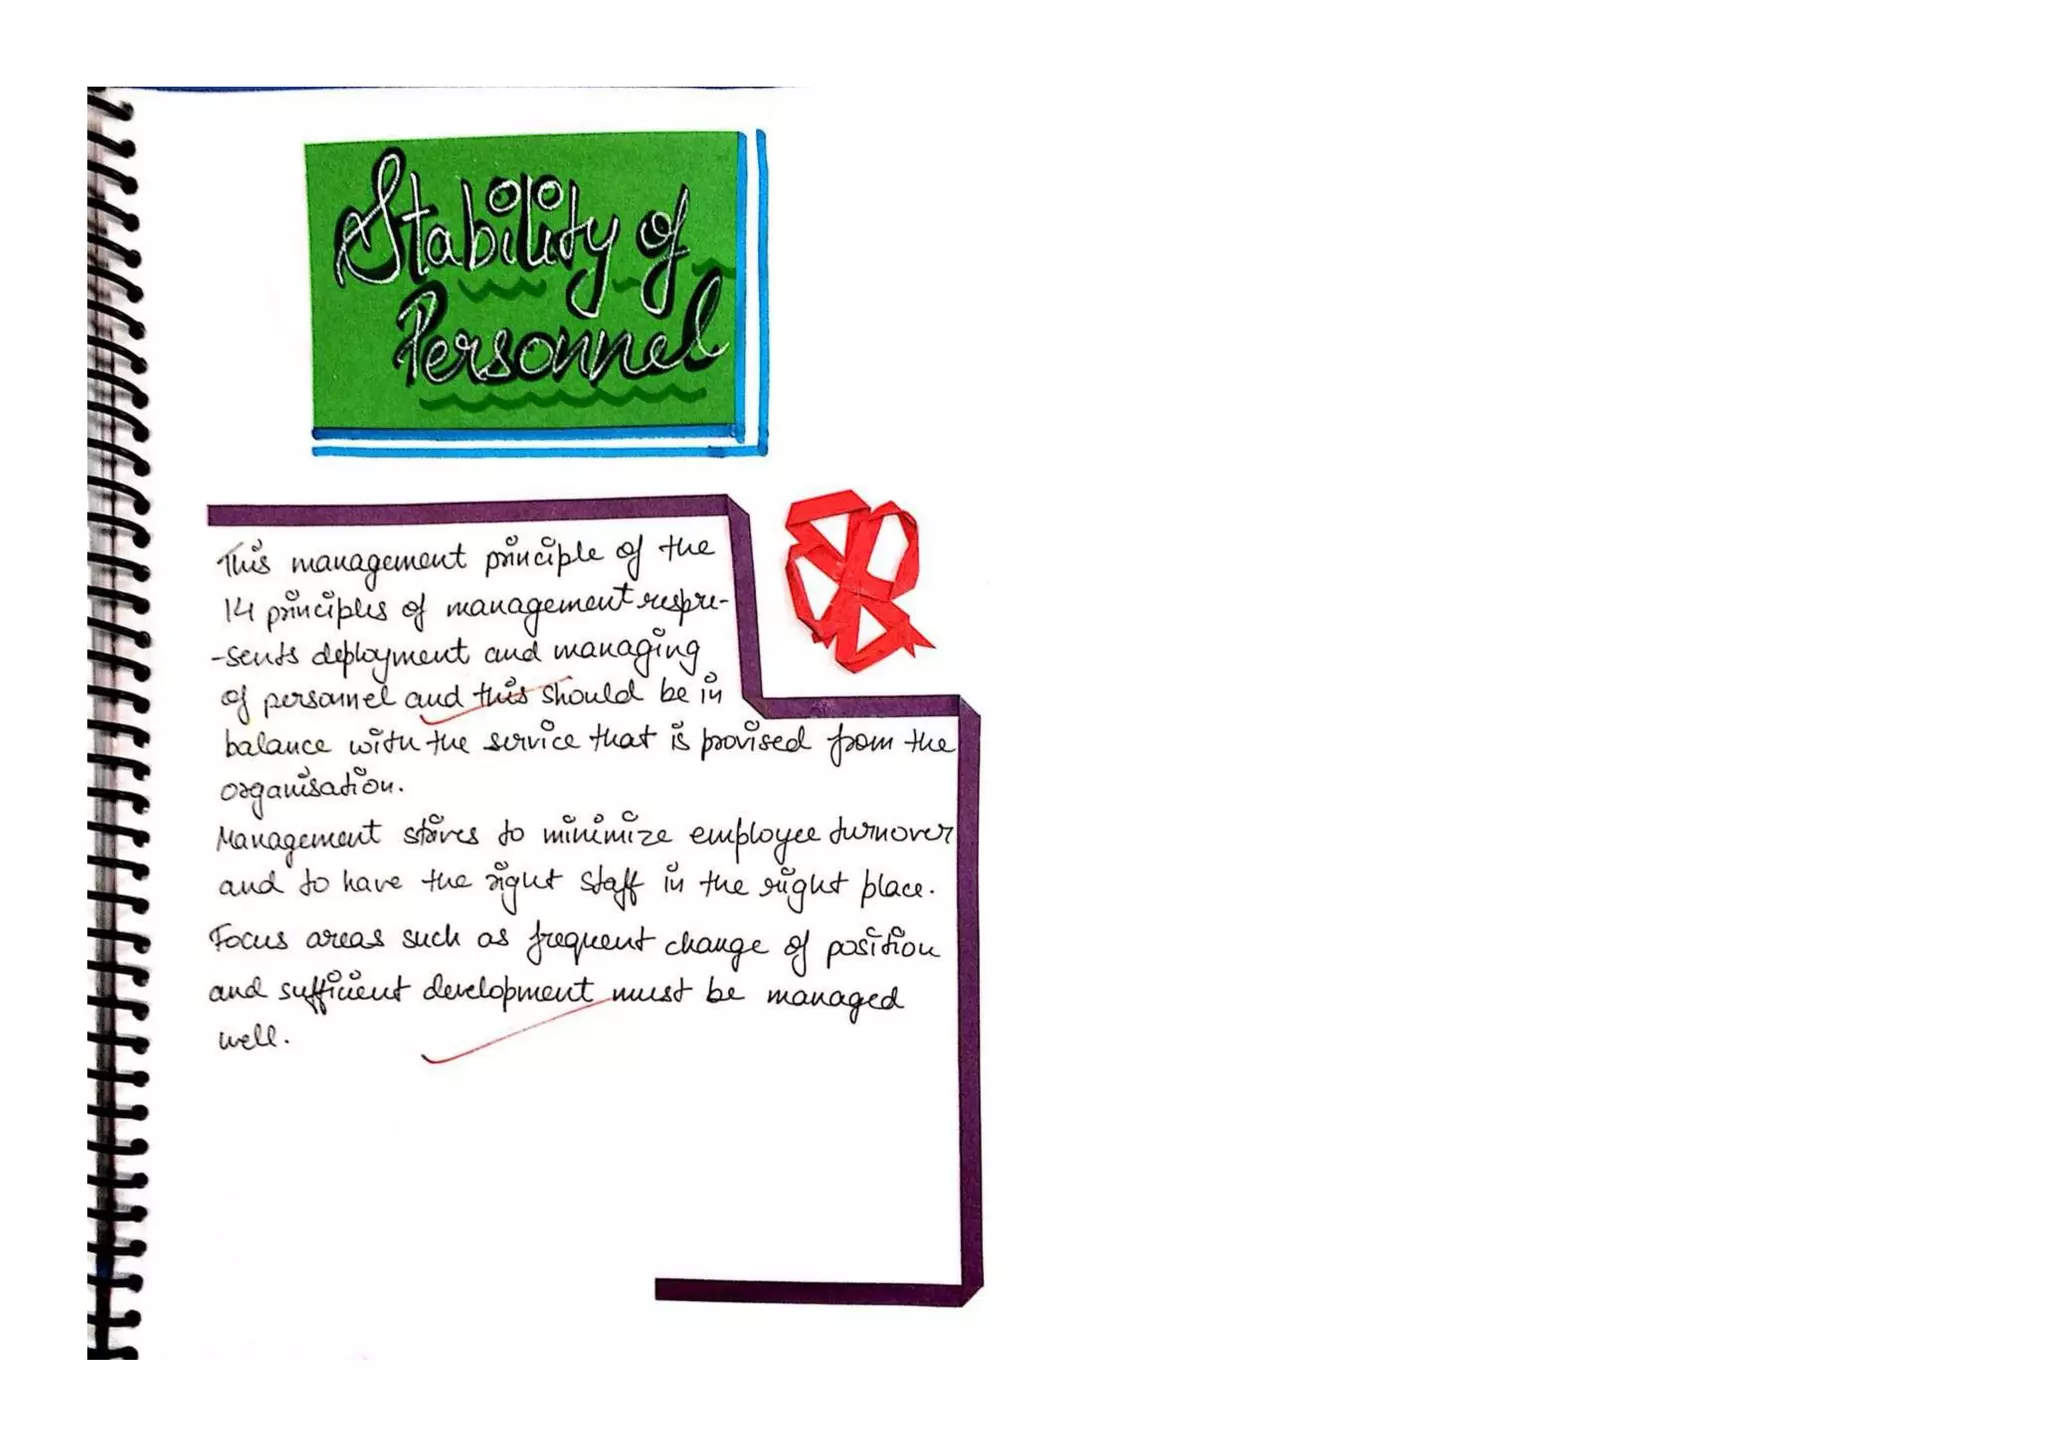 Stability of
Personnel
This management principle of the
14 principles of management repre-
-sents deployment and managing
of personnel and this should be in
balance with the service that is provised from the
organisation.
Management strives to minimize employee turnover
and to have the right staff in the right place.
Focus areas such as frequent change of position
and sufficient development must be managed
well.